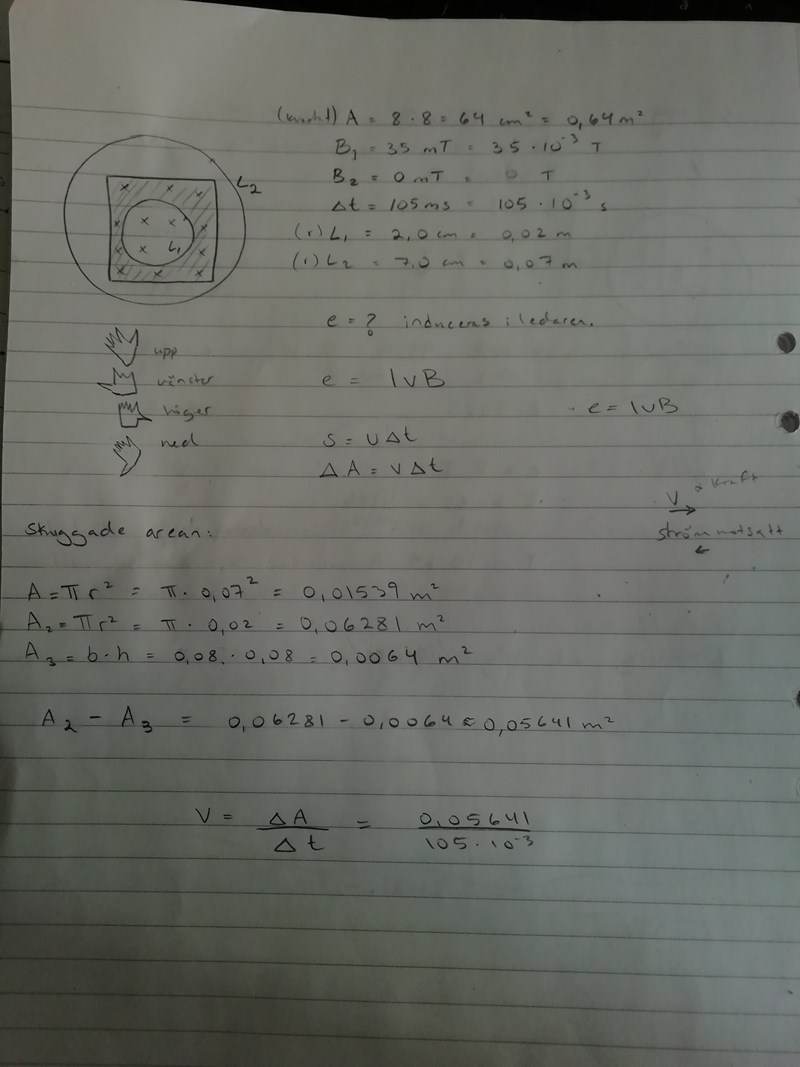 (kvadrat) A = 8 · 8 = 64 cm² = 0,64 m²
B₁ = 35 mT = 35 · 10⁻³ T
B₂ = 0 mT = 0 T
Δt = 105 ms = 105 · 10⁻³ s
(r) L₁ = 2,0 cm = 0,02 m
(r) L₂ = 7,0 cm = 0,07 m
L₂
L₁
e = ? induceras i ledaren.
upp
vänster
höger
ned
e = lvB
e = lvB
s = vΔt
ΔA = vΔt
v kraft
ström motsatt
Skuggade arean:
A = πr² = π · 0,07² = 0,01539 m²
A₂ = πr² = π · 0,02 = 0,06281 m²
A₃ = b · h = 0,08 · 0,08 = 0,0064 m²
A₂ - A₃ = 0,06281 - 0,0064 ≈ 0,05641 m²
V = ΔA / Δt = 0,05641 / 105 · 10⁻³